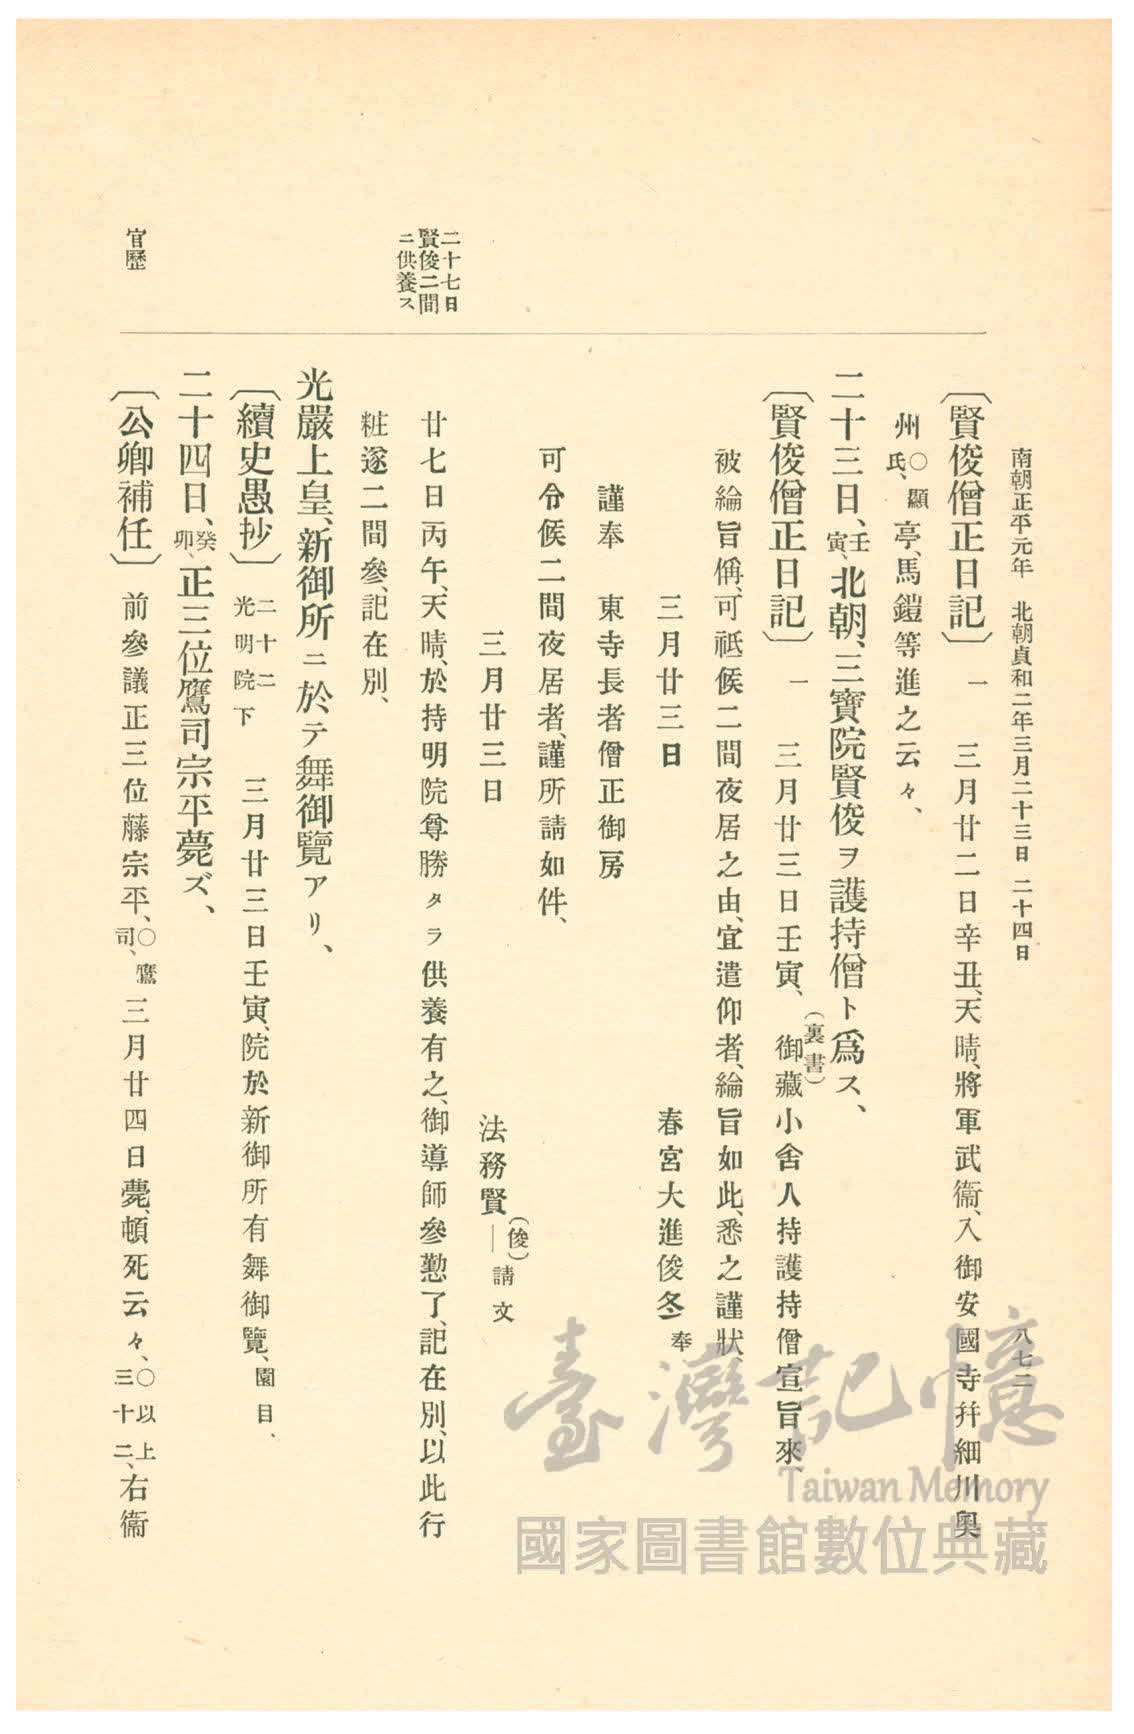 南朝正平元年 北朝貞和二年三月二十三日 二十四日 八七二
〔賢俊僧正日記〕 一 三月廿二日辛丑、天晴、將軍武衞、入御安國寺幷細川奧
州○顯氏、亭、馬鎧等進之云々、
二十三日、壬寅、北朝、三寶院賢俊ヲ護持僧ト爲ス、
〔賢俊僧正日記〕 一 三月廿三日壬寅、(裏書)御藏小舍人持護持僧宣旨來
被綸旨偁、可祗候二間夜居之由、宜遣仰者、綸旨如此、悉之謹狀、
三月廿三日 春宮大進俊冬奉
謹奉 東寺長者僧正御房
可令候二間夜居者、謹所請如件、
三月廿三日 法務賢―(俊)請文
二十七日
賢俊二間
ニ供養ス
廿七日丙午、天晴、於持明院尊勝タラ供養有之、御導師參懃了、記在別、以此行
粧遂二間參、記在別、
光嚴上皇、新御所ニ於テ舞御覽アリ、
〔續史愚抄〕 二十二光明院下 三月廿三日壬寅、院於新御所有舞御覽、園目、
二十四日、癸卯、正三位鷹司宗平薨ズ、
官歷
〔公卿補任〕 前參議正三位藤宗平、○鷹司、三月廿四日薨、頓死云々、○以上三十二、右衞
臺灣記憶
Taiwan Memory
國家圖書館數位典藏